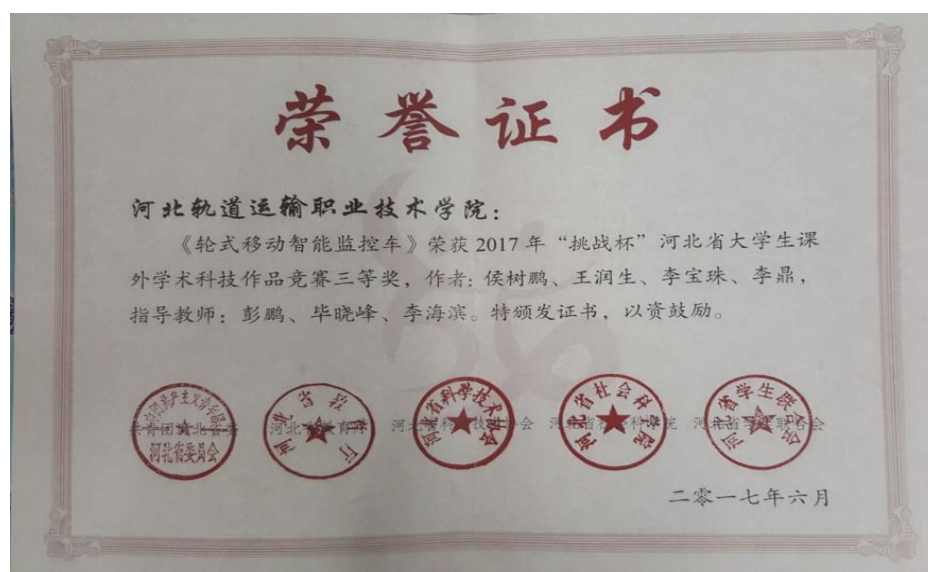 荣誉证书
河北轨道运输职业技术学院：
《轮式移动智能监控车》荣获2017年“挑战杯”河北省大学生课
外学术科技作品竞赛三等奖，作者：侯树鹏、王润生、李宝珠、李鼎，
指导教师：彭鹏、毕晓峰、李海滨。特颁发证书，以资鼓励。
共青团河北省委 河北省教育厅 河北省科学技术协会 河北省社会科学院 河北省学生联合会
河北省委员会
河北省教育厅
河北省科学技术协会
河北省社会科学院
河北省学生联合会
二零一七年六月